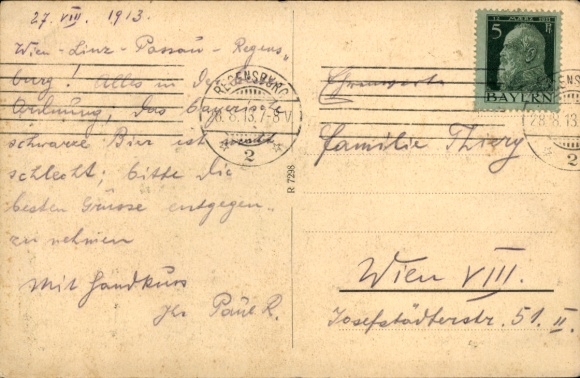 27. VIII. 1913.
Wien - Linz - Passau - Regens„
burg! Alles in der
Ordnung, das bayerische
schwarze Bier ist
schlecht; bitte die
besten Grüsse entgegen„
zu nehmen
Mit Handkuss
Ihr Paul R.
REGENSBURG
28.8.13.7-8V
2
R 7298
12. MÄRZ 1911
5 Pf
BAYERN
ENSBURG
28.8.13
2
Familie Thiery
Wien VIII.
Josefstädterstr. 51. II.